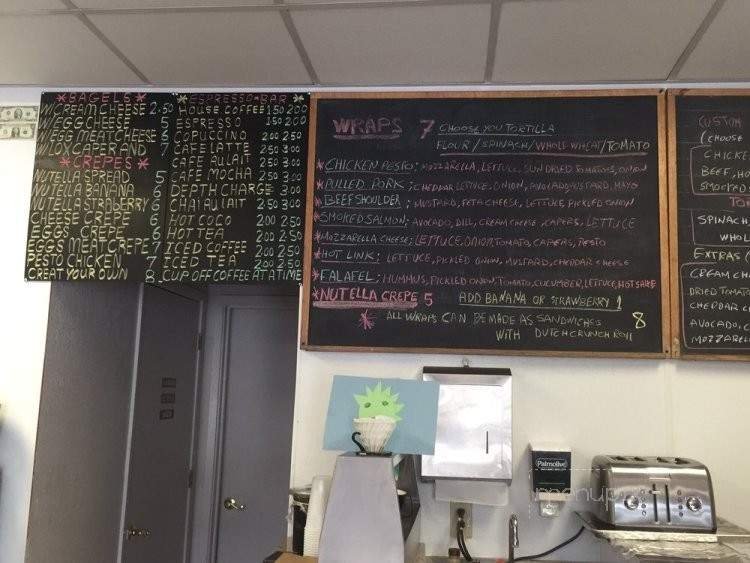 *BAGELS*
W/CREAM CHEESE 2.50
W/EGG CHEESE 5
W/EGG MEAT CHEESE 6
W/LOX CAPER AND 7
*CREPES*
NUTELLA SPREAD 5
NUTELLA BANANA 6
NUTELLA STRABERRY 6
CHEESE CREPE 5
EGGS CREPE 6
EGGS MEAT CREPE 7
PESTO CHICKEN 7
CREAT YOUR OWN 8
*ESPRESSO-BAR*
HOUSE COFFEE 150 200
ESPRESSO 150 200
COPUCCINO 200 250
CAFE LATTE 250 300
CAFE AULAIT 250 300
CAFE MOCHA 250 300
DEPTH CHARGE 300
CHAI AULAIT 250 300
HOT COCO 200 250
HOT TEA 200 250
ICED COFFEE 200 250
ICED TEA 200 250
CUP OFF COFFEE AT A TIME
WRAPS 7 CHOOSE YOU TORTILLA
FLOUR / SPINACH / WHOLE WHEAT / TOMATO
*CHICKEN PESTO; MOZZARELLA, LETTUCE, SUN DRIED TOMATOS, ONION
*PULLED PORK; CHEDDAR LETTUCE, ONION, AVOCADO MUSTARD, MAYO
*BEEF SHOULDER; MUSTARD, FETA CHEESE, LETTUCE, PICKLED ONION
*SMOKED SALMON; AVOCADO, DILL, CREAM CHEESE, CAPERS, LETTUCE
*MOZZARELLA CHEESE; LETTUCE, ONION, TOMATO, CAPERS, PESTO
*HOT LINK; LETTUCE, PICKLED ONION, MUSTARD, CHEDDAR CHEESE
*FALAFEL; HUMMUS, PICKLED ONION, TOMATO, CUCUMBER, LETTUCE, HOT SAUCE
*NUTELLA CREPE 5 ADD BANANA OR STRAWBERRY 1
* ALL WRAPS CAN BE MADE AS SANDWICHES 8
WITH DUTCH CRUNCH ROLL
CUSTOM
(CHOOSE
CHICKE
BEEF, HO
SMOKED
TO
SPINACH
WHOL
EXTRAS (
CREAM CH
DRIED TOMATO
CHEDDAR C
AVOCADO, C
MOZZAREL
Palmolive
menup